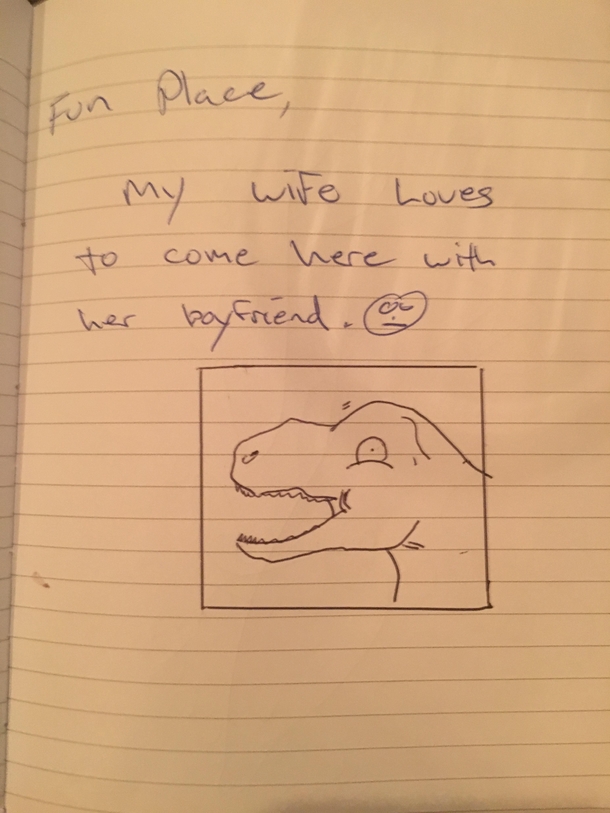 Fun Place,
My wife Loves
to come here with
her boyfriend.